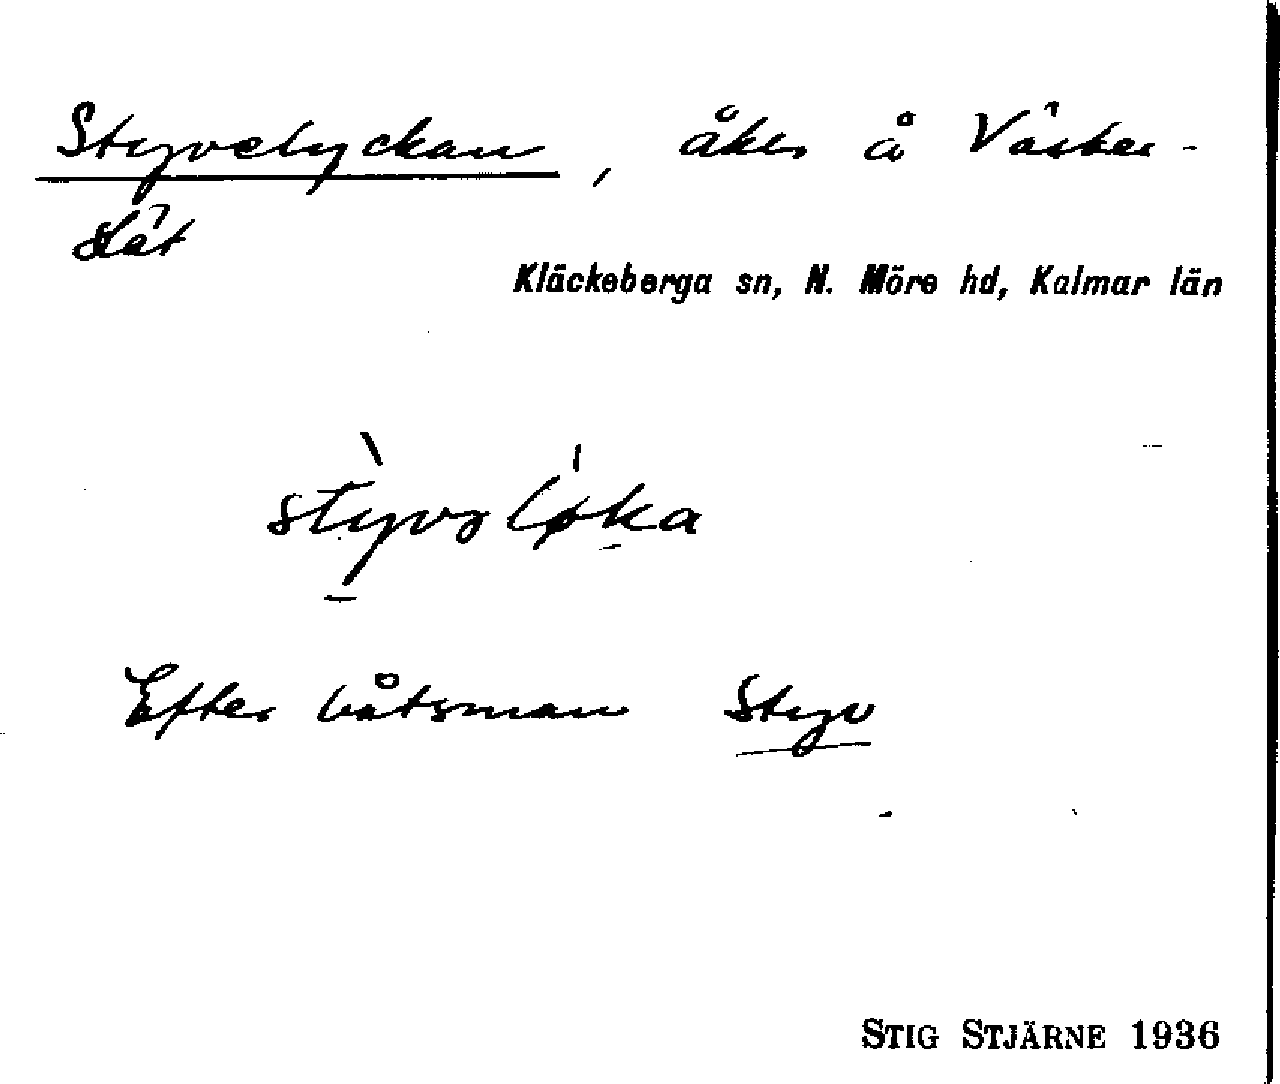 Styvelyckan, åker å Väster-
slät
Kläckeberga sn, N. Möre hd, Kalmar län
Efter båtsman Styv
STIG STJÄRNE 1936